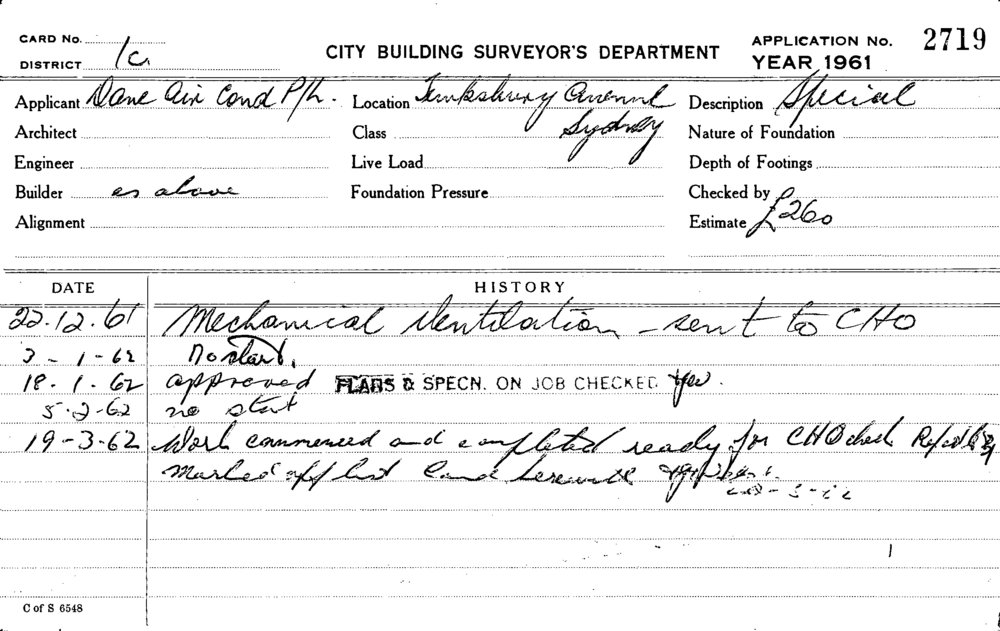 CARD No.
CITY BUILDING SURVEYOR'S DEPARTMENT
APPLICATION No. 2719
DISTRICT 1a
YEAR 1961
Applicant Dane Air Cond P/L. Location Tewksbury Avenue Description Special
Sydney
Architect Class Nature of Foundation
Engineer Live Load Depth of Footings
Builder as above Foundation Pressure Checked by
Alignment Estimate £260
DATE HISTORY
22.12.61 Mechanical Ventilation - sent to CHO
3-1-62 No start.
18.1.62 approved PLANS & SPECN. ON JOB CHECKED Yes.
5-2-62 no start
19-3-62 Work commenced and completed ready for CHO check
Marked off list Card herewith
C of S 6548